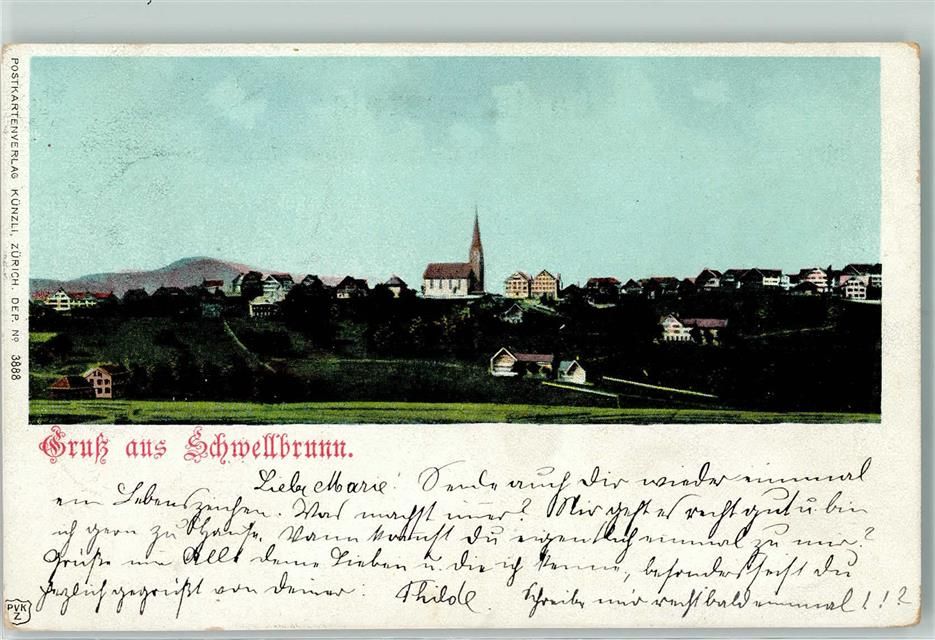 POSTKARTENVERLAG KÜNZLI, ZÜRICH. DEP. No 3888
Gruß aus Schwellbrunn.
Liebe Marie! Sende auch Dir wieder einmal
ein Lebenszeichen. Was machst immer? Mir geht es recht gut u. bin
ich gern zu Hause. Wann kommst du eigentlich einmal zu mir?
Grüße mir Alle deine Lieben u. die ich kenne, besonders seist du
herzlich gegrüßt von Deiner Thilde. Schreibe mir recht bald einmal!!?
PVK
Z